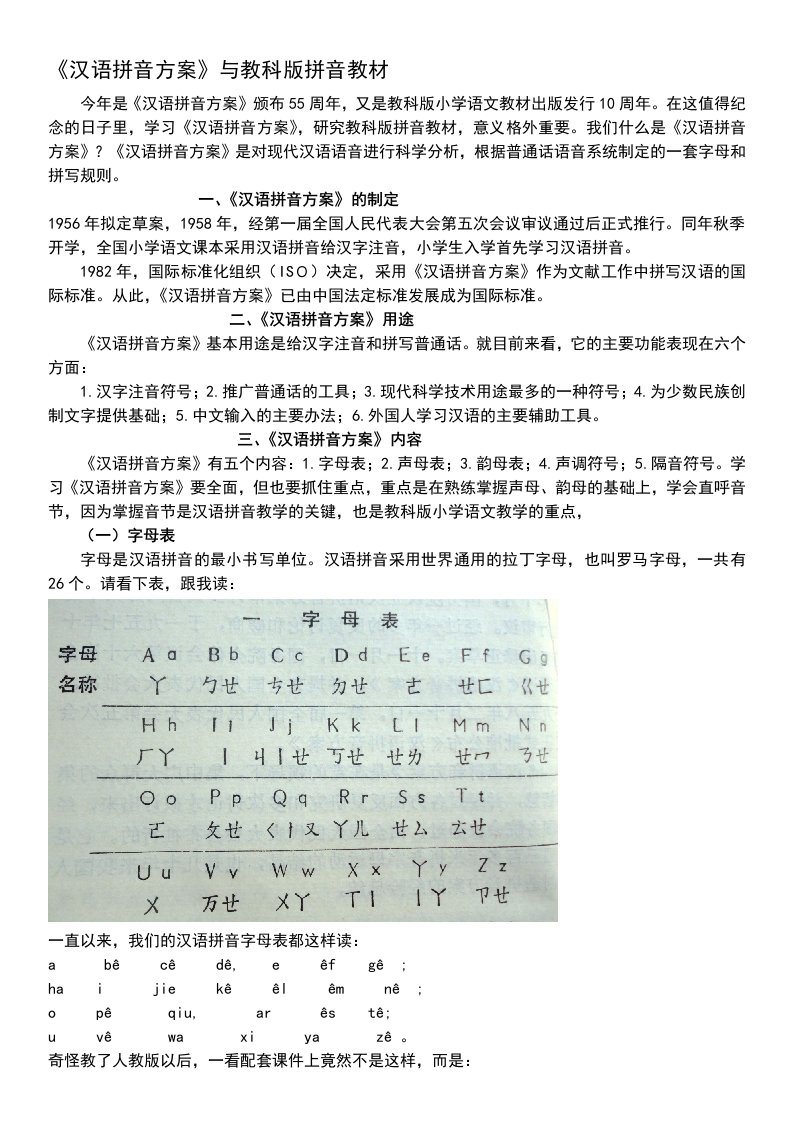 《汉语拼音方案》与教科版拼音教材
今年是《汉语拼音方案》颁布 55 周年，又是教科版小学语文教材出版发行 10 周年。在这值得纪
念的日子里，学习《汉语拼音方案》，研究教科版拼音教材，意义格外重要。我们什么是《汉语拼音
方案》？《汉语拼音方案》是对现代汉语语音进行科学分析，根据普通话语音系统制定的一套字母和
拼写规则。
一、《汉语拼音方案》的制定
1956 年拟定草案，1958 年，经第一届全国人民代表大会第五次会议审议通过后正式推行。同年秋季
开学，全国小学语文课本采用汉语拼音给汉字注音，小学生入学首先学习汉语拼音。
1982 年，国际标准化组织（ISO）决定，采用《汉语拼音方案》作为文献工作中拼写汉语的国
际标准。从此，《汉语拼音方案》已由中国法定标准发展成为国际标准。
二、《汉语拼音方案》用途
《汉语拼音方案》基本用途是给汉字注音和拼写普通话。就目前来看，它的主要功能表现在六个
方面：
1.汉字注音符号；2.推广普通话的工具；3.现代科学技术用途最多的一种符号；4.为少数民族创
制文字提供基础；5.中文输入的主要办法；6.外国人学习汉语的主要辅助工具。
三、《汉语拼音方案》内容
《汉语拼音方案》有五个内容：1.字母表；2.声母表；3.韵母表；4.声调符号；5.隔音符号。学
习《汉语拼音方案》要全面，但也要抓住重点，重点是在熟练掌握声母、韵母的基础上，学会直呼音
节，因为掌握音节是汉语拼音教学的关键，也是教科版小学语文教学的重点，
（一）字母表
字母是汉语拼音的最小书写单位。汉语拼音采用世界通用的拉丁字母，也叫罗马字母，一共有
26 个。请看下表，跟我读：
一 字 母 表
字母 A a B b C c D d E e F f G g
名称 ㄚ ㄅㄝ ㄘㄝ ㄉㄝ ㄜ ㄝㄈ ㄍㄝ
H h I i J j K k L l M m N n
ㄏㄚ ㄧ ㄐㄧㄝ ㄎㄝ ㄝㄌ ㄝㄇ ㄋㄝ
O o P p Q q R r S s T t
ㄛ ㄆㄝ ㄑㄧㄡ ㄚㄦ ㄝㄙ ㄊㄝ
U u V v W w X x Y y Z z
ㄨ ㄪㄝ ㄨㄚ ㄒㄧ ㄧㄚ ㄗㄝ
一直以来，我们的汉语拼音字母表都这样读：
a bê cê dê, e êf gê ;
ha i jie kê êl êm nê ;
o pê qiu, ar ês tê;
u vê wa xi ya zê 。
奇怪教了人教版以后，一看配套课件上竟然不是这样，而是：